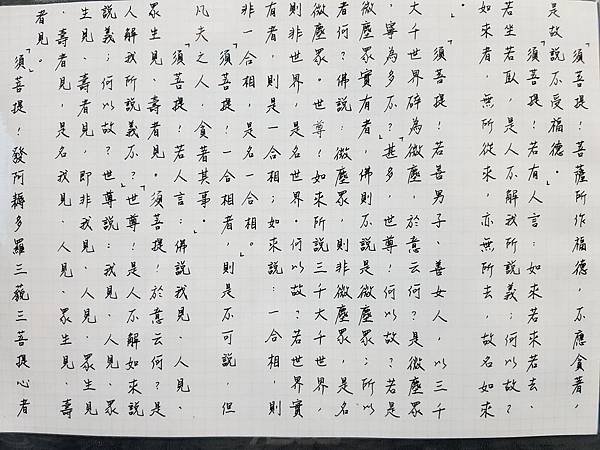 「須菩提！菩薩所作福德，不應貪著，
是故說不受福德。」
「須菩提！若有人言：如來若來若去、
若坐若臥，是人不解我所說義；何以故？
如來者，無所從來，亦無所去，故名如來
。」
「須菩提！若善男子、善女人，以三千
大千世界碎為微塵，於意云何？是微塵眾
寧為多不？」「甚多，世尊！何以故？若是
微塵眾實有者，佛則不說是微塵眾；所以
者何？佛說：微塵眾，則非微塵眾，是名
微塵眾。世尊！如來所說三千大千世界，
則非世界，是名世界。何以故？若世界實
有者，則是一合相；如來說：一合相，則
非一合相，是名一合相。」
「須菩提！一合相者，則是不可說，但
凡夫之人，貪著其事。」
「須菩提！若人言：佛說我見、人見、
眾生見、壽者見。須菩提！於意云何？是
人解我所說義不？」「世尊！是人不解如來所
說義；何以故？世尊說：我見、人見、眾
生見、壽者見，即非我見、人見、眾生見
、壽者見，是名我見、人見、眾生見、壽
者見。」
「須菩提！發阿耨多羅三藐三菩提心者